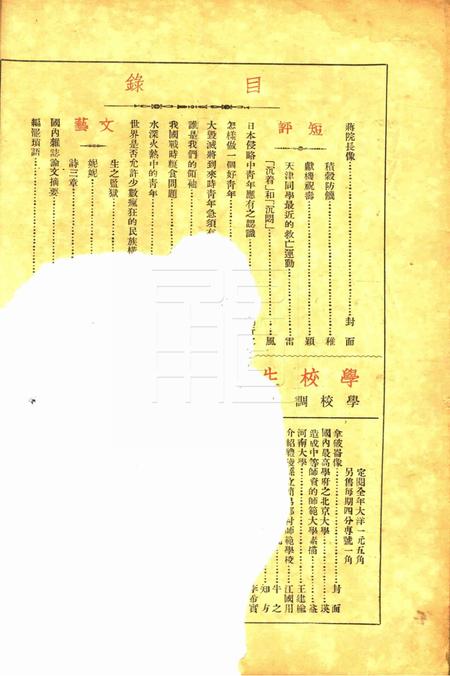 目錄
蔣院長像……封面
短評
積穀防饑……稚
獻機祝壽……穎
天津同學最近的救亡運動……雷
「沉着」和「沉悶」……風
日本侵略中青年應有之認識
怎樣做一個好青年
大毀滅將到來時青年急須有
誰是我們的領袖
我國戰時糧食問題
水深火熱中的青年
世界是否允許少數瘋狂的民族橫
文藝
生之監獄
妮妮
詩三章
國內雜誌論文摘要
編罷瑣語
學校生
學校調
定閱全年大洋一元五角
另售每期四分專號一角
拿破崙像……封面
國內最高學府之北京大學……瑛
造成中等師資的師範大學素描……盛
河南大學……王建楡
介紹禮陵縣立簡易鄉村師範學校……江國用
牛之
知方
李希實